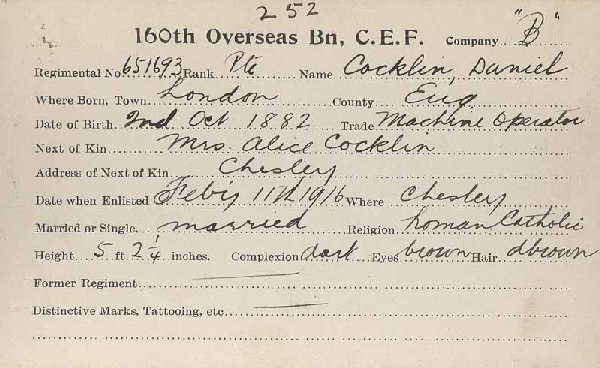 252
160th Overseas Bn, C.E.F. Company "B"
Regimental No 651693 Rank Pte Name Cocklin, Daniel
Where Born, Town London County Eng
Date of Birth 2nd Oct 1882 Trade Machine Operator
Next of Kin Mrs Alice Cocklin
Address of Next of Kin Chesley
Date when Enlisted Feb'y 11th 1916 Where Chesley
Married or Single married Religion Roman Catholic
Height 5 ft 2 1/4 inches. Complexion dark Eyes brown Hair dbrown
Former Regiment
Distinctive Marks, Tattooing, etc